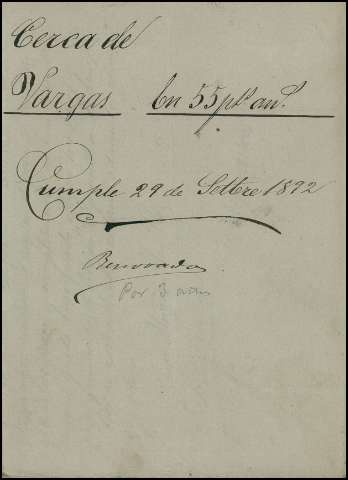 Cerca de
Vargas En 55 p.s an.s
Cumple 29 de Settbre 1892
Renovada
Por 3